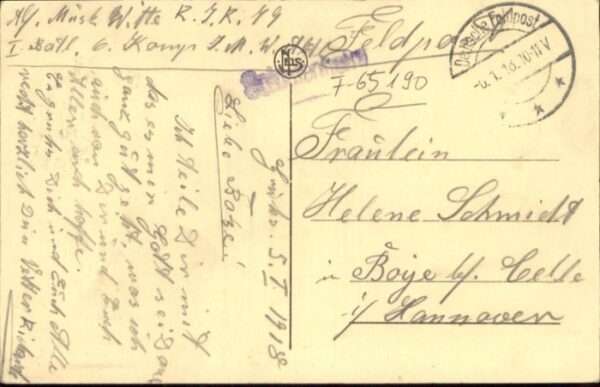 Abs. Musk. Witte R. I. R. 79
I Batl. 6. Komp. I. M. W.
Feldpost
Deutsche Feldpost
6.1.18.10-11V
F-65190
Fräulein
Helene Schmidt
in Boye b/. Celle
i/ Hannover
5. I 1918
Liebe
Ich teile Dir mit
das es mir Gott sei Dank
ganz gut geht, was ich
auch von Dir und Euch
Allen auch hoffe.
Es grüßt Dich und Euch Alle
recht herzlich Dein Vetter Richard